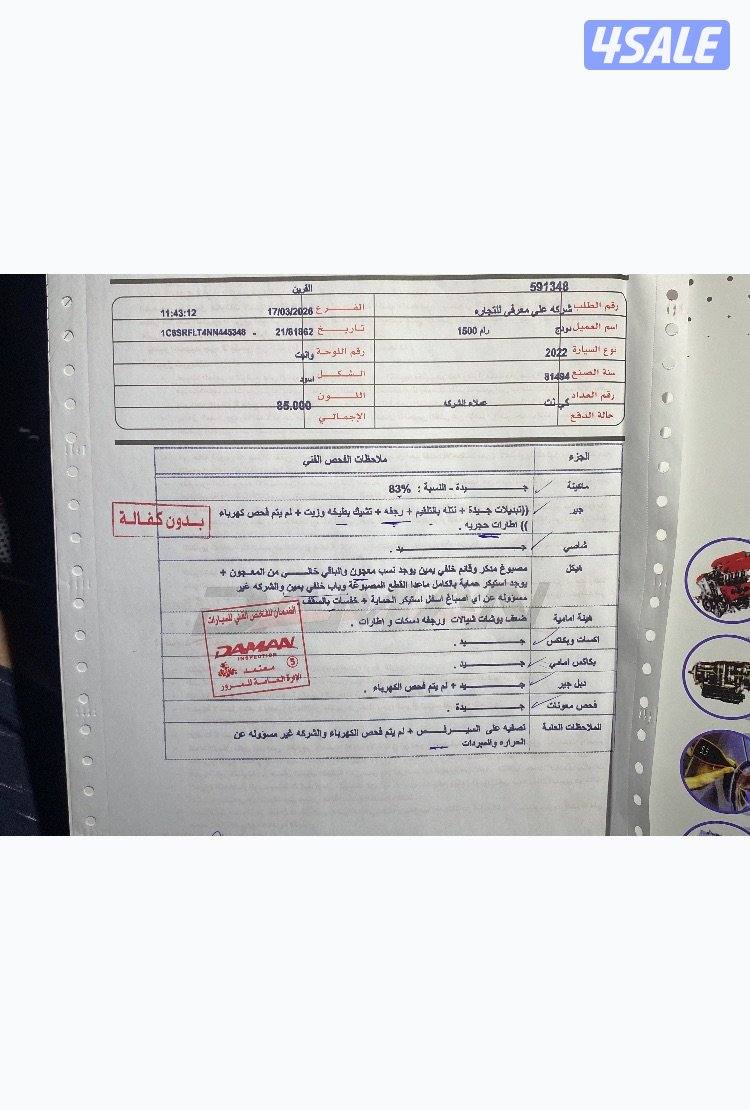 4SALE
القرين
591348
رقم الطلب شركه علي معرفي للتجاره
الفـــرع 17/03/2026 11:43:12
اسم العميل دودج رام 1500
تاريــخ 21/81862 - 1C6SRFLT4NN445348
نوع السيارة 2022
رقم اللوحة وانيت
سنة الصنع 81494
الشكــل اسود
رقم العداد كي نت عملاء الشركه
اللـــون 85.000
حالة الدفع
الإجمالي
الجزء ملاحظات الفحص الفني
ماكينة جـــــــــــيدة - النسبة : 83%
جير ((تبديلات جـيدة + نتله بالتلقيم + رجفه + تشيك بطيخه وزيت + لم يتم فحص كهرباء
)) اطارات حجريه .
بدون كفالة
شاصي جـــــــــــيد .
هيكل مصبوغ منكر وقائم خلفي يمين يوجد نسب معجون والباقي خالـــــي من المعجون +
يوجد استيكر حماية بالكامل ماعدا القطع المصبوغة وباب خلفي يمين والشركه غير
مسؤوله عن أي اصباغ اسفل استيكر الحماية + خفسات بالسقف
هيئة امامية ضعف بوشات شيالات ورجفه دسكات و اطارات .
اكسات وبكاكس جـــــــــــيد .
بكاكس امامي جـــــــــــيد .
دبل جير جـــــــــــيد + لم يتم فحص الكهرباء .
فحص معونات جـــــــــــيدة .
الملاحظات العامة تصفيه على السيـــرفـــس + لم يتم فحص الكهرباء والشركه غير مسؤوله عن
الحراره والمبردات
الضمان للفحص الفني للسيارات
DAMAN
INSPECTION
معتمد 5
الإدارة العامة للمرور